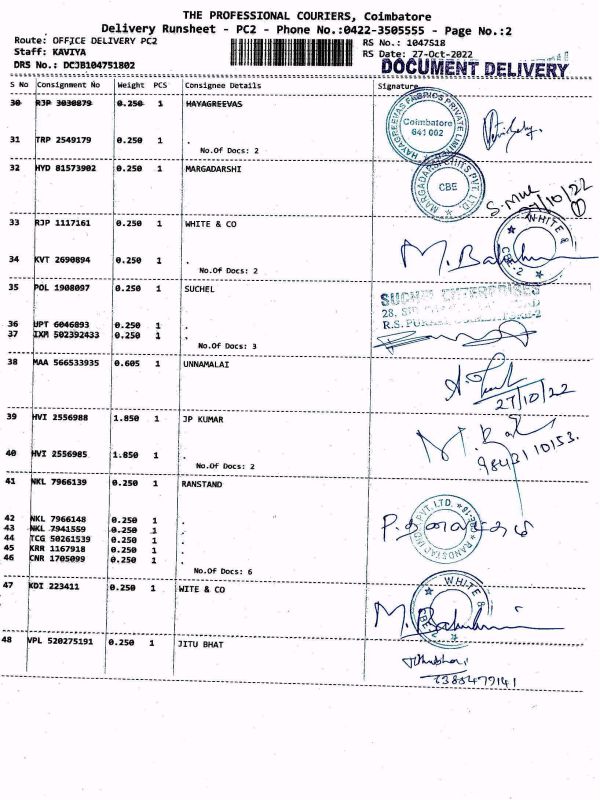 THE PROFESSIONAL COURIERS, Coimbatore
Delivery Runsheet - PC2 - Phone No.:0422-3505555 - Page No.:2
Route: OFFICE DELIVERY PC2 RS No.: 1047518
Staff: KAVIYA RS Date: 27-Oct-2022
DRS No.: DCJB104751802 DOCUMENT DELIVERY
S No Consignment No Weight PCS Consignee Details Signature
30 RJP 3030879 0.250 1 HAYAGREEVAS
HAYAGREEVAS FABRICS PRIVATE LIMITED
Coimbatore
641 002
31 TRP 2549179 0.250 1 .
No.Of Docs: 2
32 HYD 81573902 0.250 1 MARGADARSHI
CBE
27/10/22
33 RJP 1117161 0.250 1 WHITE & CO
WHITE &
CBE-2
34 KVT 2690894 0.250 1 .
No.Of Docs: 2
35 POL 1908097 0.250 1 SUCHEL
SUCHEL ENTERPRISES
36 UPT 6046893 0.250 1 .
37 IXM 502392433 0.250 1 .
No.Of Docs: 3
38 MAA 566533935 0.605 1 UNNAMALAI
27/10/22
39 HVI 2556988 1.850 1 JP KUMAR
40 HVI 2556985 1.850 1 .
No.Of Docs: 2
41 NKL 7966139 0.250 1 RANSTAND
42 NKL 7966148 0.250 1 .
43 NKL 7941559 0.250 1 .
44 TCG 50261539 0.250 1 .
45 KRR 1167918 0.250 1 .
46 CNR 1705099 0.250 1 .
No.Of Docs: 6
47 KDI 223411 0.250 1 WITE & CO
WHITE &
CBE-2
48 VPL 520275191 0.250 1 JITU BHAT